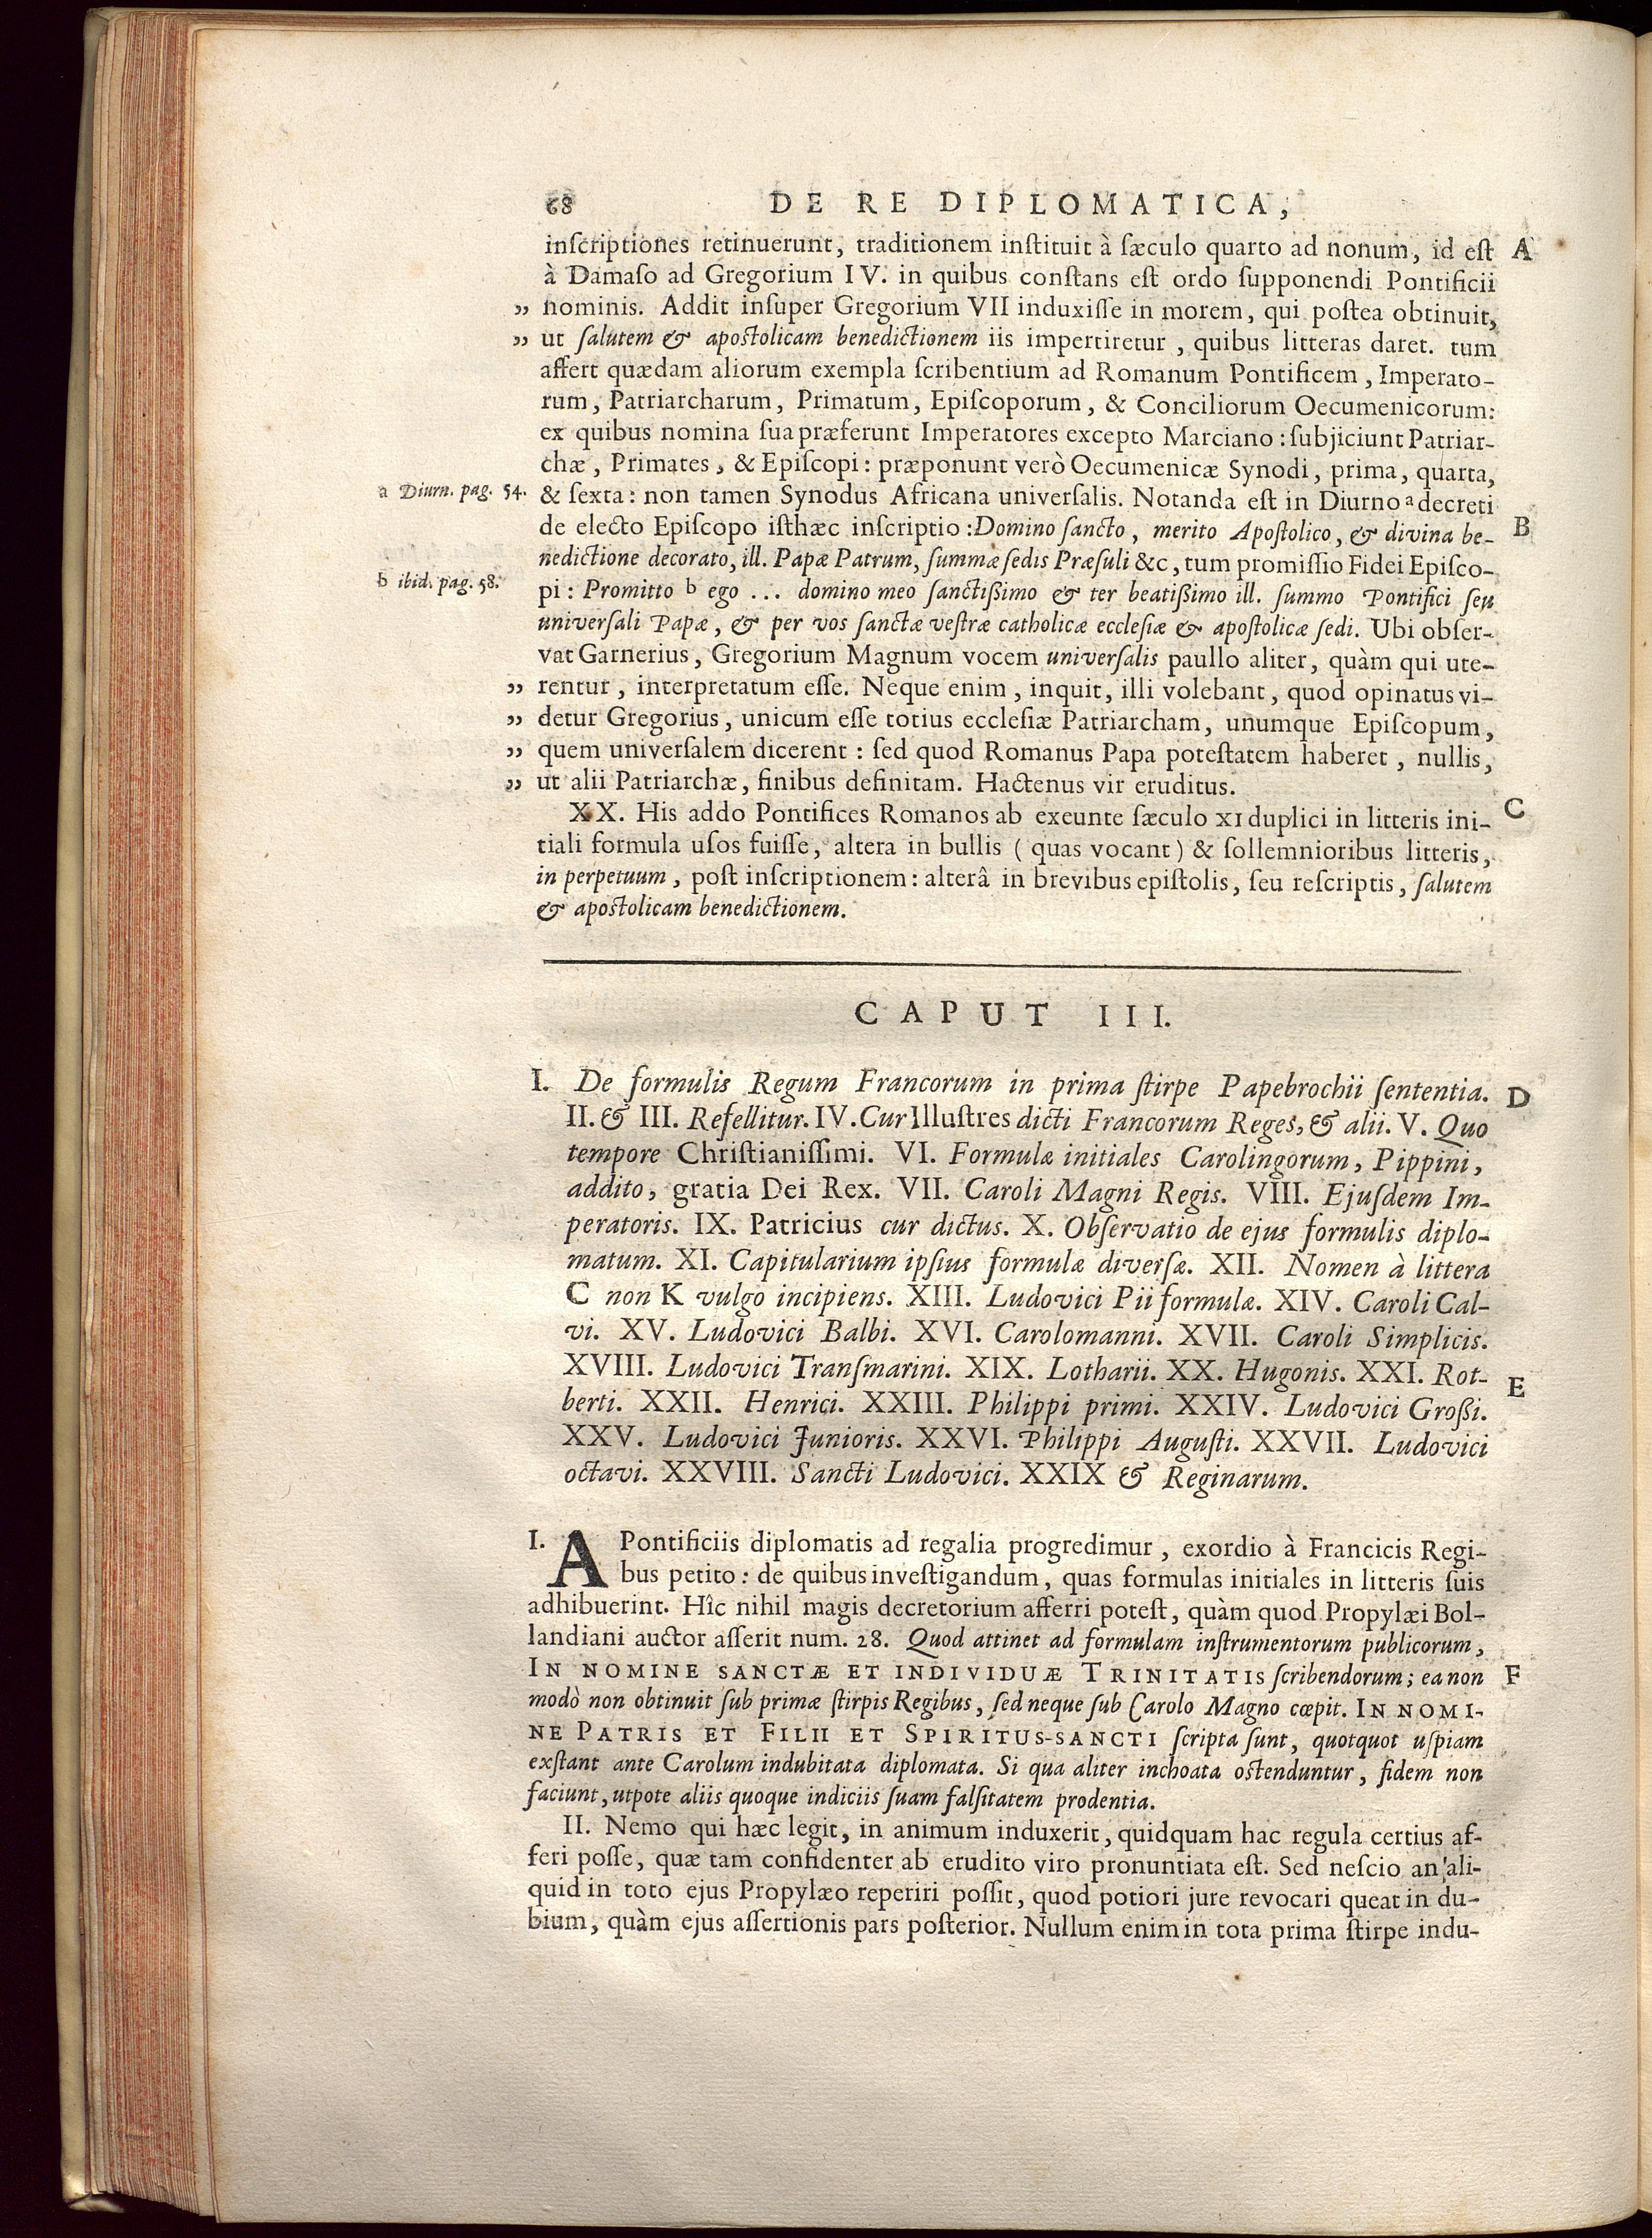 68 DE RE DIPLOMATICA,
inſcriptiones retinuerunt, traditionem inſtituit à ſæculo quarto ad nonum, id eſt A
à Damaſo ad Gregorium IV. in quibus conſtans eſt ordo ſupponendi Pontificii
„ nominis. Addit inſuper Gregorium VII induxiſſe in morem, qui poſtea obtinuit,
„ ut ſalutem & apoſtolicam benedictionem iis impertiretur, quibus litteras daret. tum
affert quædam aliorum exempla ſcribentium ad Romanum Pontificem, Imperato-
rum, Patriarcharum, Primatum, Epiſcoporum, & Conciliorum Oecumenicorum:
ex quibus nomina ſua præferunt Imperatores excepto Marciano: ſubjiciunt Patriar-
chæ, Primates, & Epiſcopi: præponunt verò Oecumenicæ Synodi, prima, quarta,
a Diurn. pag. 54. & ſexta: non tamen Synodus Africana univerſalis. Notanda eſt in Diurno a decreti
de electo Epiſcopo iſthæc inſcriptio: Domino ſancto, merito Apoſtolico, & divina be- B
nedictione decorato, ill. Papæ Patrum, ſummæ ſedis Præſuli &c, tum promiſſio Fidei Epiſco-
b ibid. pag. 58. pi: Promitto b ego ... domino meo ſanctißimo & ter beatißimo ill. ſummo Pontifici ſeu
univerſali Papæ, & per vos ſanctæ veſtræ catholicæ eccleſiæ & apoſtolicæ ſedi. Ubi obſer-
vat Garnerius, Gregorium Magnum vocem univerſalis paullo aliter, quàm qui ute-
„ rentur, interpretatum eſſe. Neque enim, inquit, illi volebant, quod opinatus vi-
„ detur Gregorius, unicum eſſe totius eccleſiæ Patriarcham, unumque Epiſcopum,
„ quem univerſalem dicerent: ſed quod Romanus Papa poteſtatem haberet, nullis,
„ ut alii Patriarchæ, finibus definitam. Hactenus vir eruditus.
XX. His addo Pontifices Romanos ab exeunte ſæculo XI duplici in litteris ini- C
tiali formula uſos fuiſſe, altera in bullis (quas vocant) & ſollemnioribus litteris,
in perpetuum, poſt inſcriptionem: alterâ in brevibus epiſtolis, ſeu reſcriptis, ſalutem
& apoſtolicam benedictionem.
CAPUT III.
I. De formulis Regum Francorum in prima ſtirpe Papebrochii ſententia. D
II. & III. Refellitur. IV. Cur Illuſtres dicti Francorum Reges, & alii. V. Quo
tempore Chriſtianiſſimi. VI. Formulæ initiales Carolingorum, Pippini,
addito, gratia Dei Rex. VII. Caroli Magni Regis. VIII. Ejuſdem Im-
peratoris. IX. Patricius cur dictus. X. Obſervatio de ejus formulis diplo-
matum. XI. Capitularium ipſius formulæ diverſæ. XII. Nomen à littera
C non K vulgo incipiens. XIII. Ludovici Pii formulæ. XIV. Caroli Cal-
vi. XV. Ludovici Balbi. XVI. Carolomanni. XVII. Caroli Simplicis.
XVIII. Ludovici Tranſmarini. XIX. Lotharii. XX. Hugonis. XXI. Rot-
berti. XXII. Henrici. XXIII. Philippi primi. XXIV. Ludovici Großi. E
XXV. Ludovici Junioris. XXVI. Philippi Auguſti. XXVII. Ludovici
octavi. XXVIII. Sancti Ludovici. XXIX & Reginarum.
I. A Pontificiis diplomatis ad regalia progredimur, exordio à Francicis Regi-
bus petito: de quibus inveſtigandum, quas formulas initiales in litteris ſuis
adhibuerint. Hîc nihil magis decretorium afferri poteſt, quàm quod Propylæi Bol-
landiani auctor aſſerit num. 28. Quod attinet ad formulam inſtrumentorum publicorum,
IN NOMINE SANCTÆ ET INDIVIDUÆ TRINITATIS ſcribendorum; ea non F
modò non obtinuit ſub primæ ſtirpis Regibus, ſed neque ſub Carolo Magno cœpit. IN NOMI-
NE PATRIS ET FILII ET SPIRITUS-SANCTI ſcripta ſunt, quotquot uſpiam
exſtant ante Carolum indubitata diplomata. Si qua aliter inchoata oſtenduntur, fidem non
faciunt, utpote aliis quoque indiciis ſuam falſitatem prodentia.
II. Nemo qui hæc legit, in animum induxerit, quidquam hac regula certius af-
feri poſſe, quæ tam confidenter ab erudito viro pronuntiata eſt. Sed neſcio an'ali-
quid in toto ejus Propylæo reperiri poſſit, quod potiori jure revocari queat in du-
bium, quàm ejus aſſertionis pars poſterior. Nullum enim in tota prima ſtirpe indu-